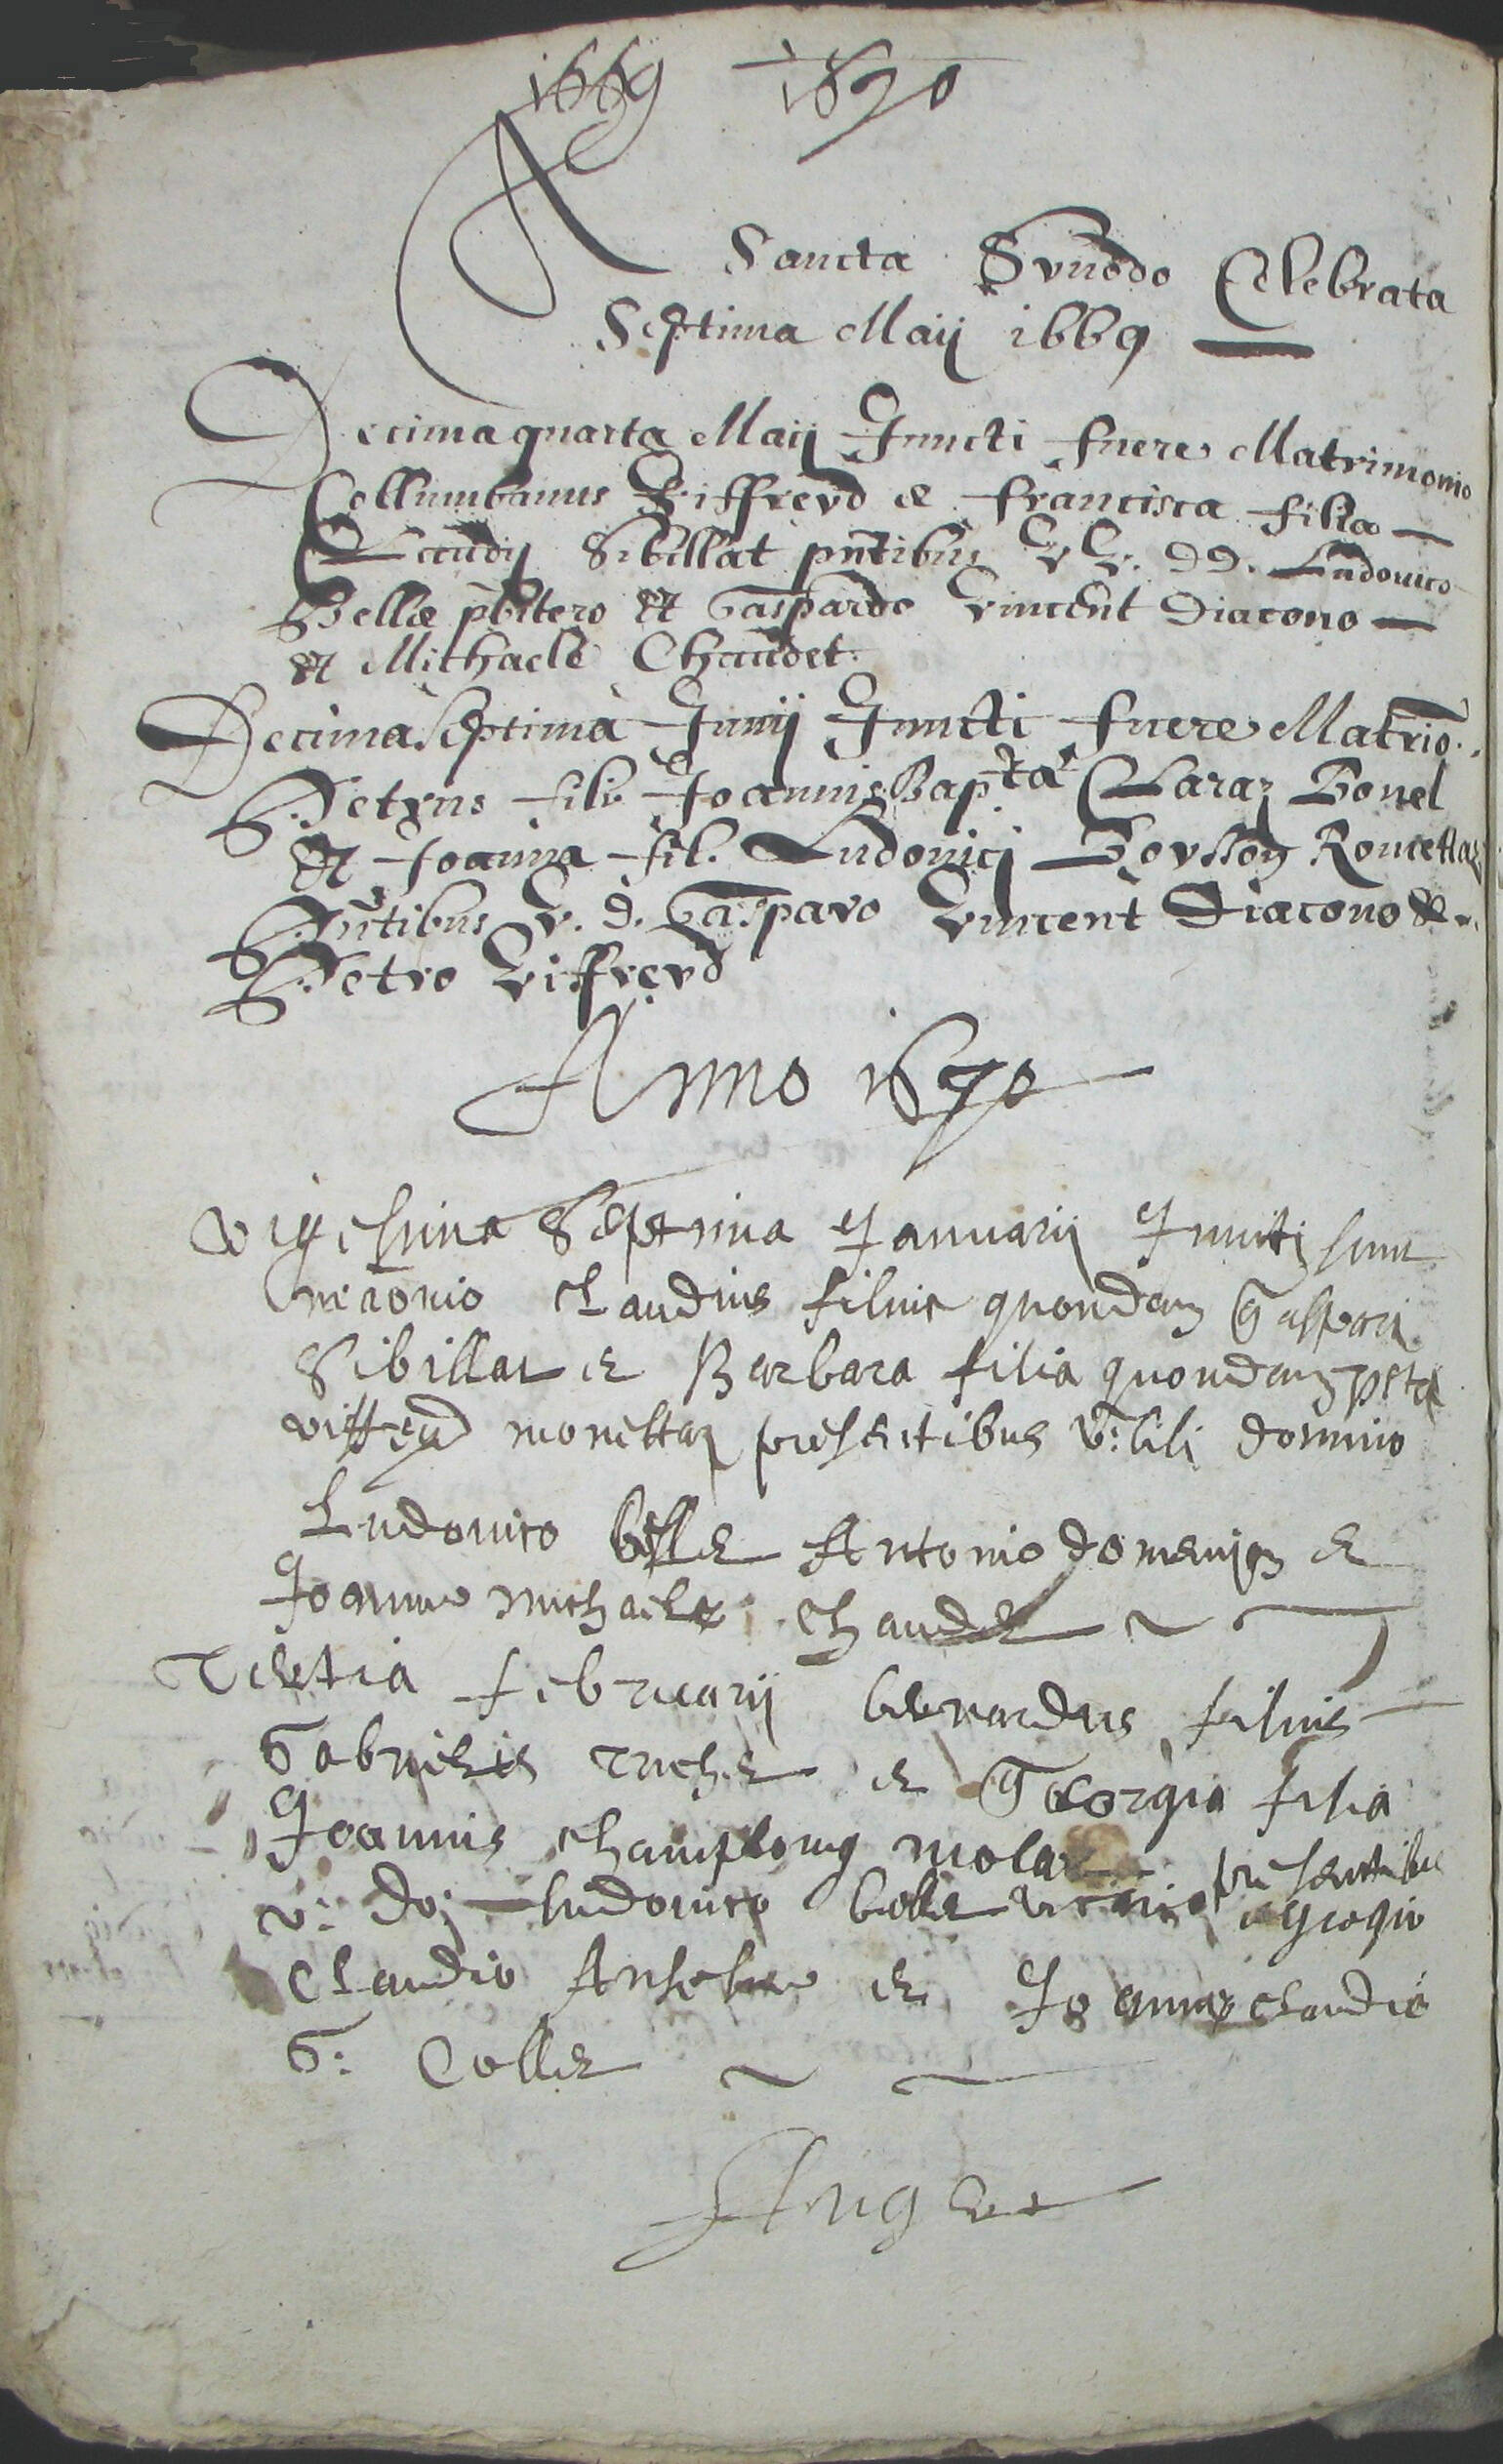 1669 1670
A Sancta Synodo Celebrata
Septima Maij 1669
Decimaquarta Maij Juncti fuere Matrimonio
Collumbanus Viffreyd & francisca filia
Claudij Sibillat pntibus VV. DD. Ludovico
Bellæ pbitero et Gaspardo Vincent Diacono
et Michaele Chaudet.
Decimaseptima Junij Juncti fuere Matrio.
Petrus fils Joannis Bapta Claraz Bonel
et Joanna fil. Ludovici Roncettaz
Pntibus V. D. Gasparo Vincent Diacono &
Petro Viffreyd
Anno 1670
vigesima Septima Januarij Juncti sunt
mrōnio Claudius filius quondam Gaspari
Sibillat et Barbara filia quondam petri
viffeyd monettaz presentibus v:bili domino
Ludovico belle Antonio domenjoz et
Joanne michaele chaudet
Tertia februarij bernardus filius
Gabrielis et Georgia filia
Joannis champlong molar presentibus
v: do: ludovico belle vicario egregio
Claudio Anselme et Joanne claudio
G: Colle